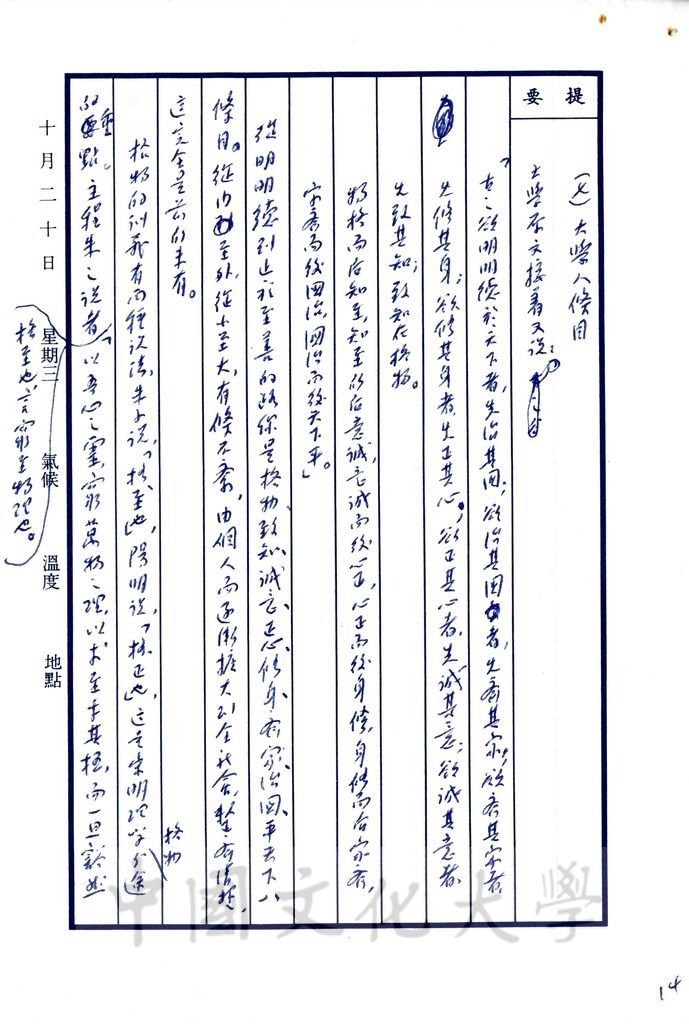 提要
(七)大學八條目
大學原文接着又說:
「古之欲明明德於天下者,先治其國;欲治其國者,先齊其家;欲齊其家者
先修其身;欲修其身者,先正其心;欲正其心者,先誠其意;欲誠其意者
先致其知;致知在格物。
物格而后知至,知至而后意誠,意誠而後心正,心正而後身修,身修而后家齊,
家齊而後國治,國治而後天下平」。
從明明德到止於至善的路線是格物、致知、誠意、正心、修身、齊家、治國、平天下八
條目。從內至外,從小至大,有條不紊,由個人而逐漸擴大到全社會,整齊清楚,
這完全是前所未有。
格物的訓義有兩種說法,朱子說,「格,至也」,陽明說,「格正也」,這是宋明理學分途
格物
的重點。主程朱之說者,「以吾心之靈,窮萬物之理,以求至乎其極,而一旦豁然
格至也,言窮至物理也。
十月二十日 星期三 氣候 溫度 地點
中國文化大學
14